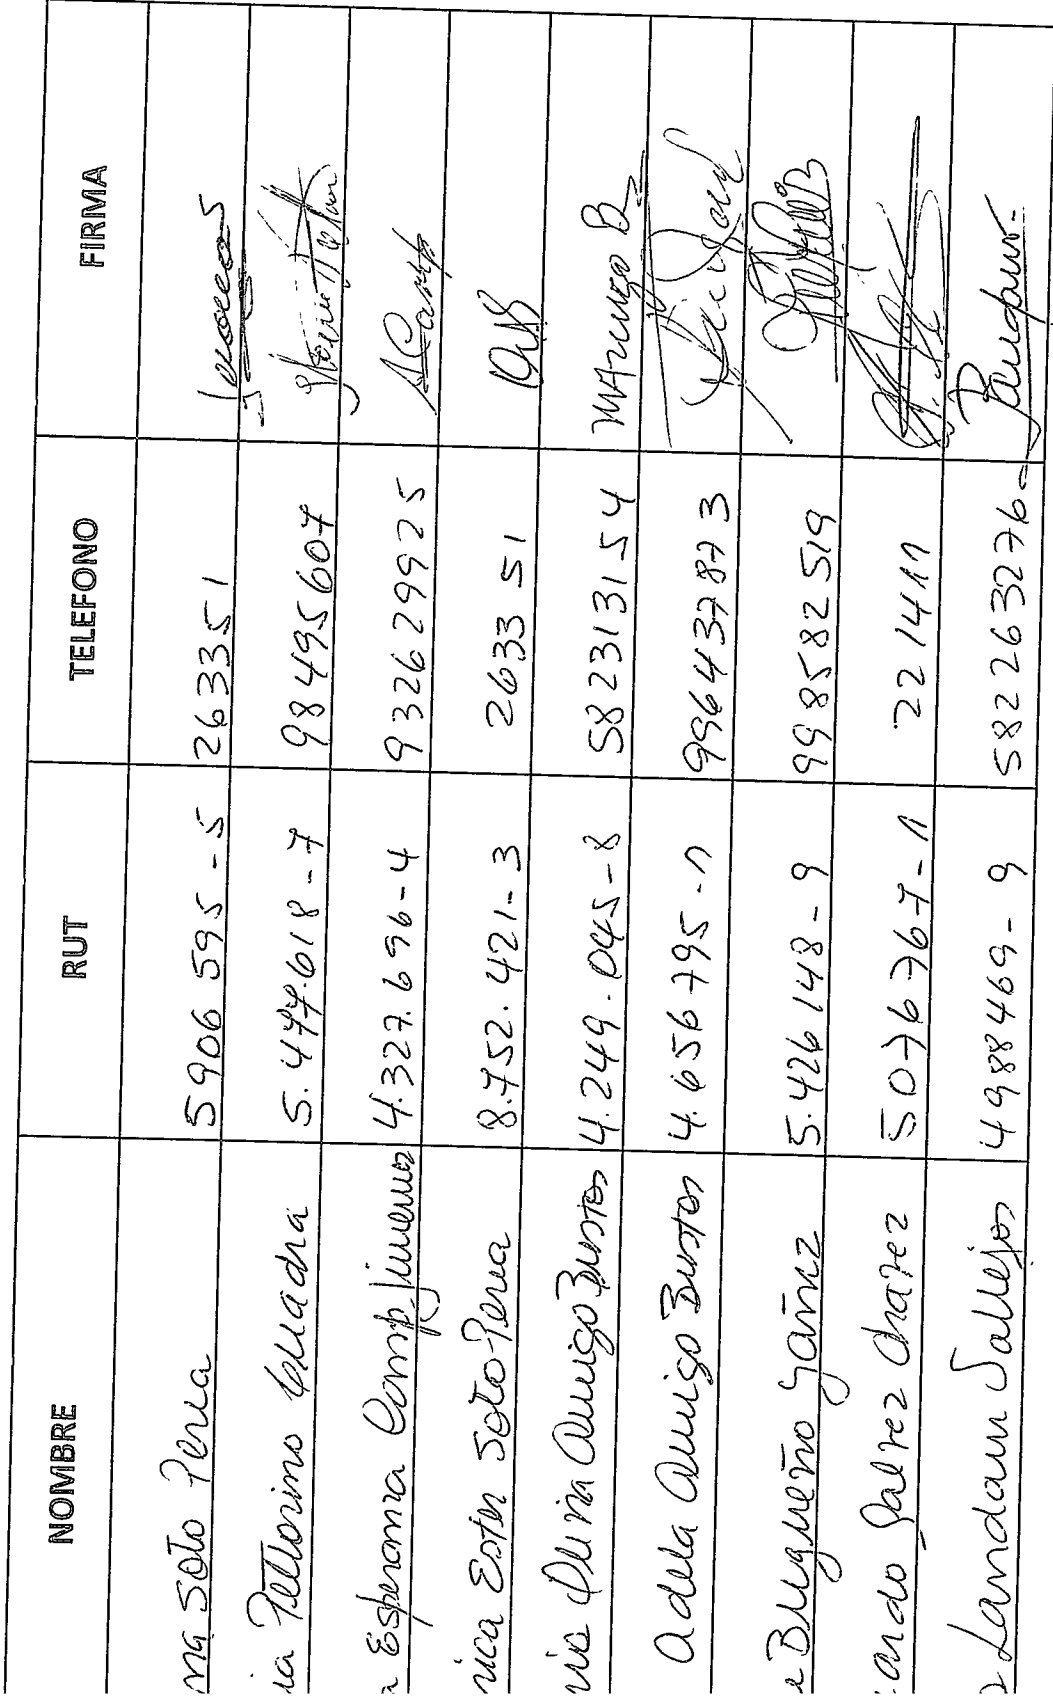 NOMBRE RUT TELEFONO FIRMA
na Soto Pena 5906595-5 263351
ia Pellorimo Cuadra 5.477.618-7 98495607
a Esperanza Camp. Jimenez 4.327.696-4 932629925 ACamp
nica Ester Soto Pena 8.752.421-3 263351
ria Olivia Amigo Bustos 4.249.045-8 582313154 MAmigo B
Adela Amigo Bustos 4.656795-1 996437873
e Brugueño Gañiz 5.426148-9 998582519
ardo Galvez Chavez 5076767-1 221411
o Landaur Vallejos 4988469-9 582263276- Landaur.